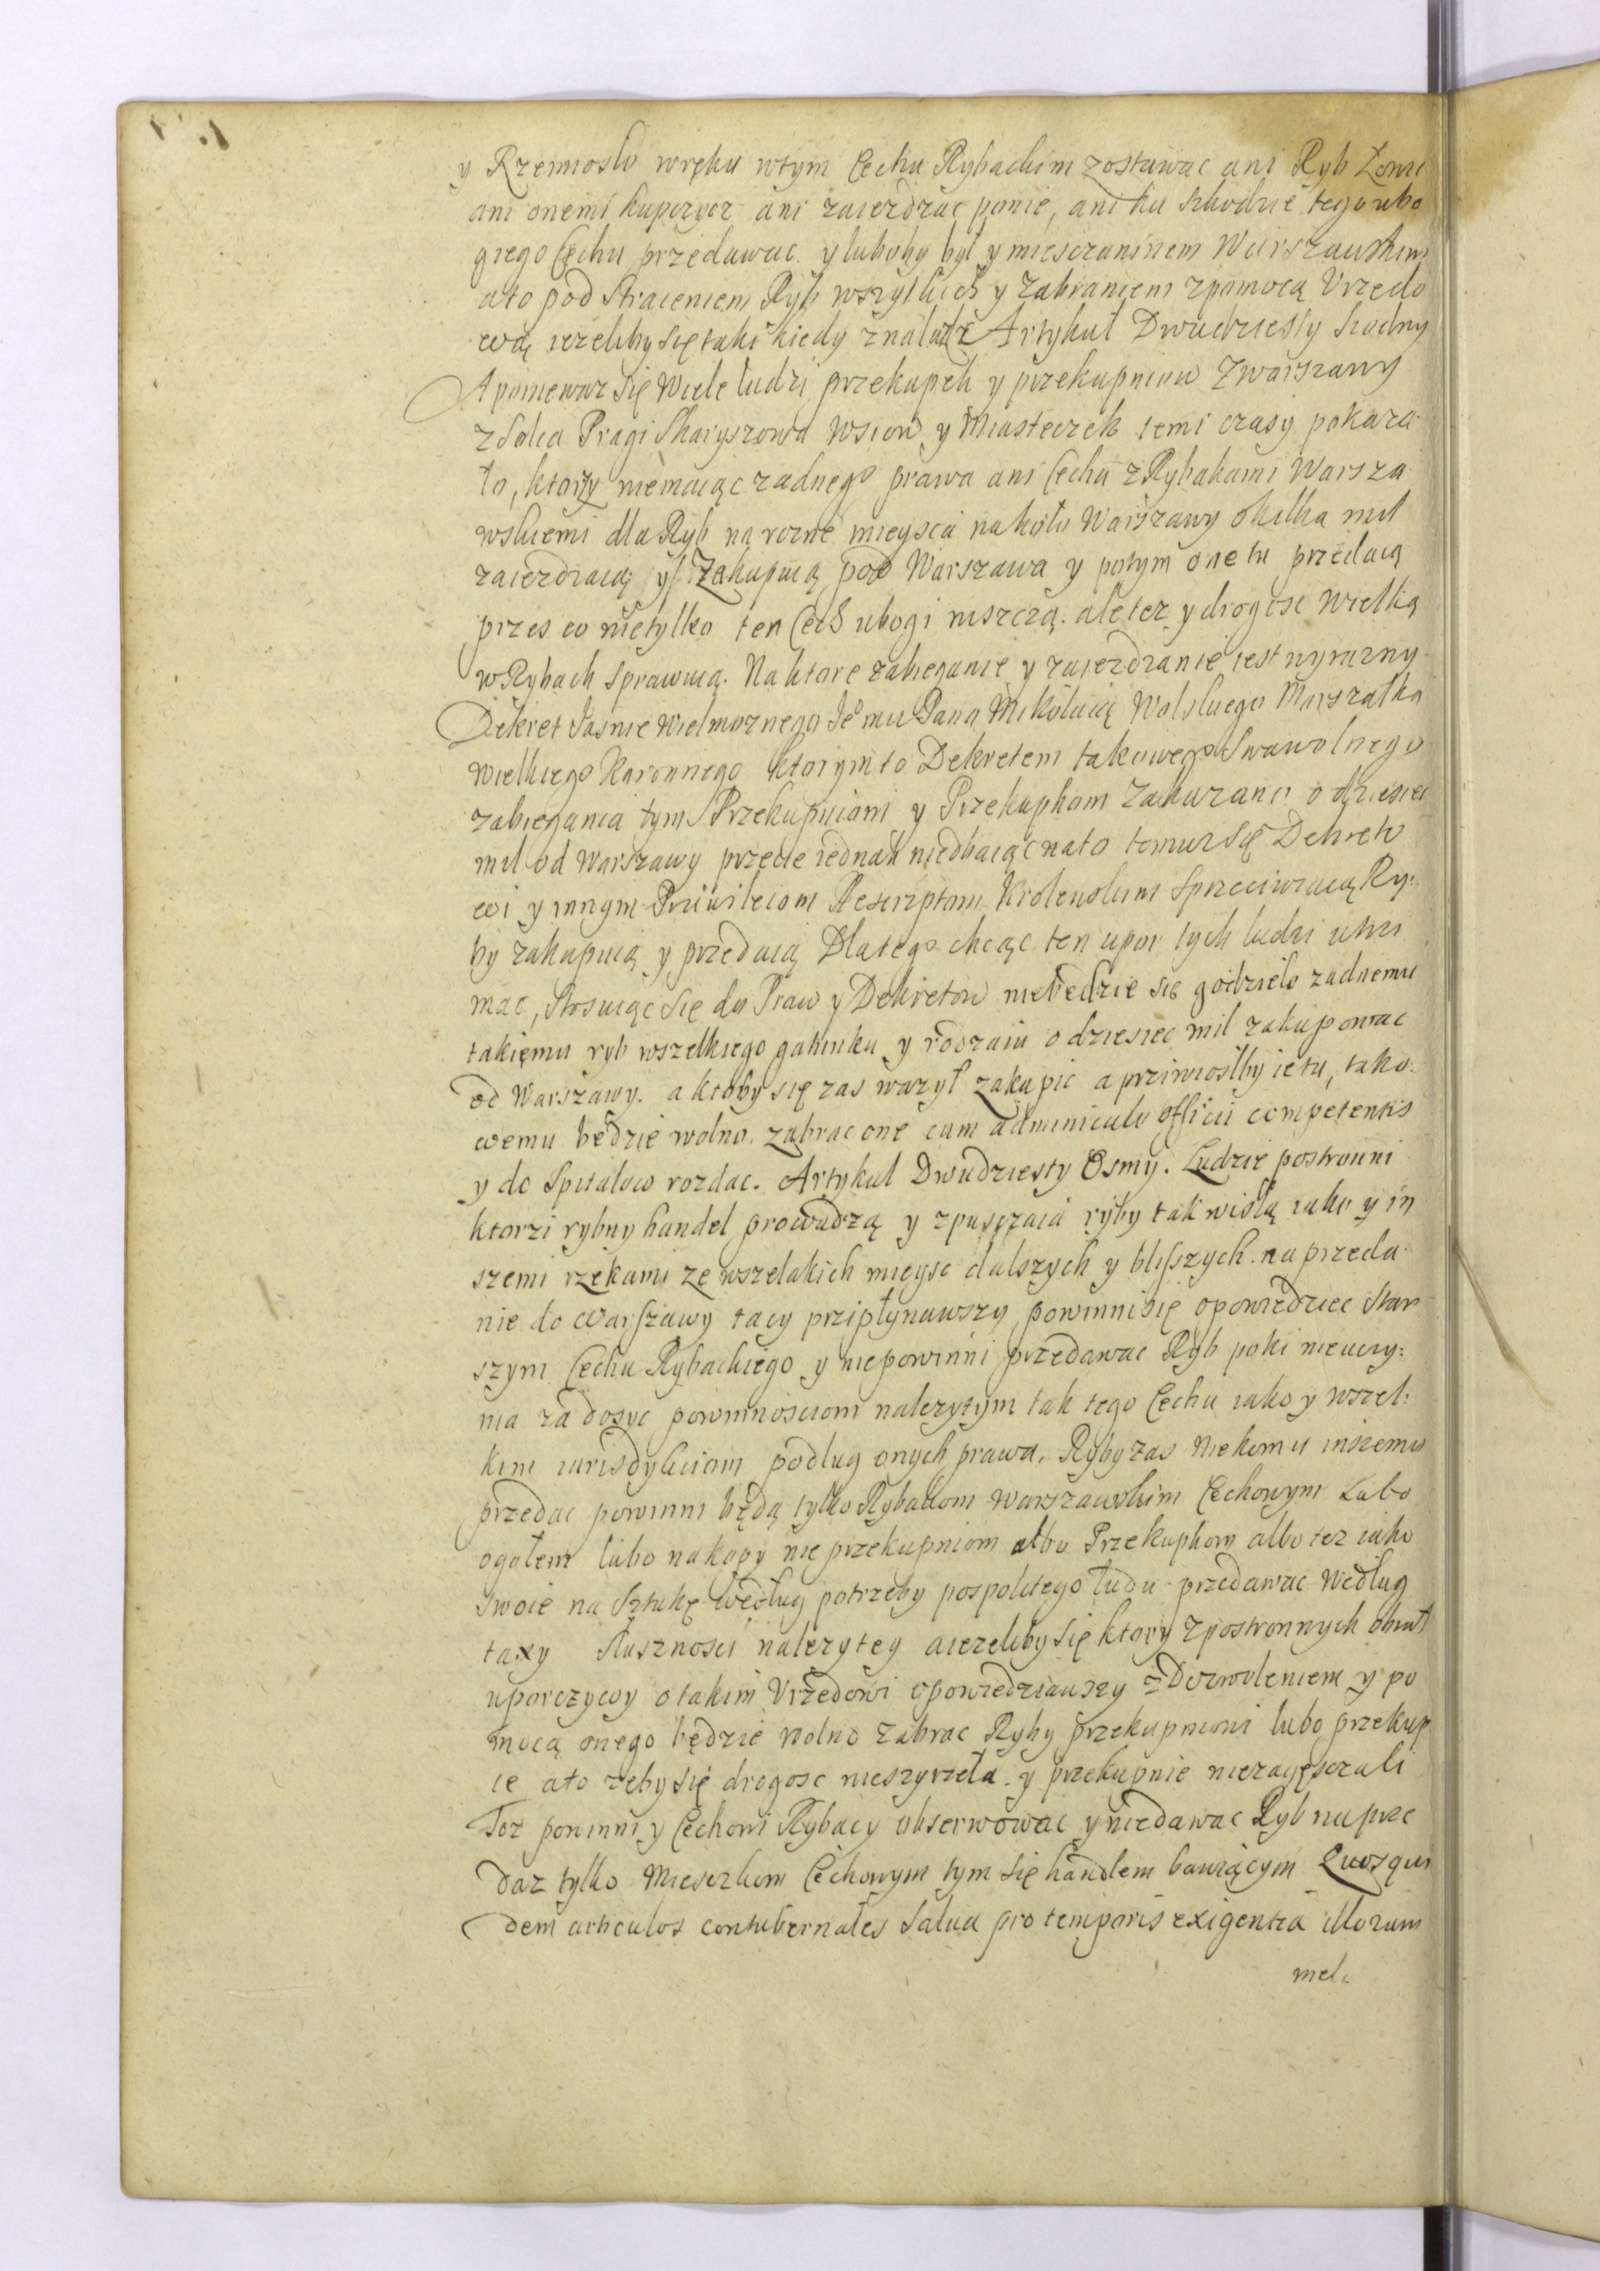 y Rzemiosło wręku wtym Cechu Rybackim zostawac ani Ryb Łowic
ani onemi kupczycz ani zaierdzac ponie, ani ku szkodzie tego ubo
giego Cechu przedawac. y luboby był y mieszczaninem Warszawskim
ato pod straceniem Ryb wszytkich y Zabraniem zpomocą Vrzędo
wą iezeliby się taki kiedy znalazł Artykuł Dwudziesty Siodmy
A poniewaz się Wiele ludzi przekupek y przekupniow Zwarszawy
z Solca Pragi Skaryszowa Wsiow y Miasteczek temi czasy pokaza
ło, ktorzy niemaiąc zadnego prawa ani Cechu z Rybakami Warsza
wskiemi dla Ryb na rozne mieysca nakoło Warszawy o kilka mil
zaiezdzaią y Zakupuią pod Warszawa y potym one tu przedaią
przes co nietylko ten Cech ubogi niszczą. ale tez y drogosc Wielką
w Rybach sprawuią. Na ktore zabieganie y zaiezdzanie iest wyrazny
Dekret Jasnie Wielmoznego Jeo mu Pana Mikołaia Wolskiego Marszałka
Wielkiego Koronnego ktorym to Dekretem takowego Swawolnego
zabiegania tym Przekupniom y Przekupkom Zakazano o dziesiec
mil od Warszawy przecie iednak niedbaiąc nato temusz się Dekreto
wi y innym Priuileiom Rescriptom Krolewskim sprzeciwiaią Ry:
by zakupuią y przedaią Dlatego chcąc ten upor tych ludzi utrzi
mac, stosuiąc się do Praw y Dekretow niebędzie się godzieło zadnemu
takiemu ryb wszelkiego gatunku y rodzaiu o dziesiec mil zakupowac
od Warszawy. a ktoby się zas wazył zakupic a przyniosłby ie tu, tako:
wemu będzie wolno. zabrac one cum adminiculo officii competentis
y do Spitalow rozdac. Artykuł Dwudziesty Osmy. Ludzie postronni
ktorzi rybny handel prowadzą y zpusczaią ryby tak wisłą iako y in
szemi rzekami ze wszelakich mieysc dalszych y bliższych. na przeda
nie do Warszawy tacy przipłynawszy powinni się opowiedziec Star
szym Cechu Rybackiego y niepowinni przedawac Ryb poki nieuczy:
nia za dosyc powinnosciom nalezytym tak tego Cechu iako y wszel:
kim iurisdykciom podlug onych prawa. Ryby zas Niekomu inszemu
przedac powinni będą tylko Rybakom Warszawskim Cechowym Lubo
ogołem lubo na kopy nie przekupniom albo Przekupkom albo tez iako
swoie na sztukę według potrzeby pospolitego ludu przedawac Według
taxy Słusznosci nalezytey aiezeliby się ktory zpostronnych obrał
uporczywy o takim Vrzędowi opowiedziawszy z Dozwoleniem y po
mocą onego będzie Wolno Zabrac Ryby przekupniowi lubo przekup
ce ato zeby się drogosc nieszyrzeła. y przekupnie niezagęsczali
Toz powinni y Cechowi Rybacy obserwowac y niedawac Ryb na prze
daz tylko Mieszkom Cechowym tym się handlem bawiącym Quosqui
dem articulos contubernales Salua pro temporis exigentia illorum
mel.